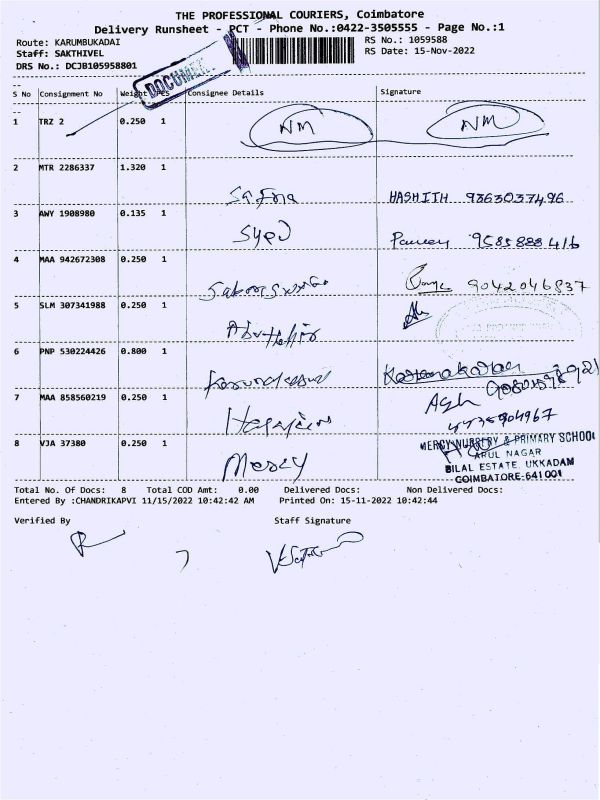 THE PROFESSIONAL COURIERS, Coimbatore
Delivery Runsheet - PCT - Phone No.:0422-3505555 - Page No.:1
Route: KARUMBUKADAI
RS No.: 1059588
Staff: SAKTHIVEL
RS Date: 15-Nov-2022
DRS No.: DCJB105958801
S No Consignment No Weight Pcs Consignee Details Signature
1 TRZ 2 0.250 1 NM NM
2 MTR 2286337 1.320 1 HASHITH 9863037496
3 AWY 1908980 0.135 1 Syed 9585888416
4 MAA 942672308 0.250 1 9042046837
5 SLM 307341988 0.250 1
6 PNP 530224426 0.800 1
7 MAA 858560219 0.250 1
8 VJA 37380 0.250 1 Mercy
MERCY NURSERY & PRIMARY SCHOOL
ARUL NAGAR
BILAL ESTATE, UKKADAM
COIMBATORE-641001
Total No. Of Docs: 8 Total COD Amt: 0.00 Delivered Docs: Non Delivered Docs:
Entered By :CHANDRIKAPVI 11/15/2022 10:42:42 AM Printed On: 15-11-2022 10:42:44
Verified By Staff Signature